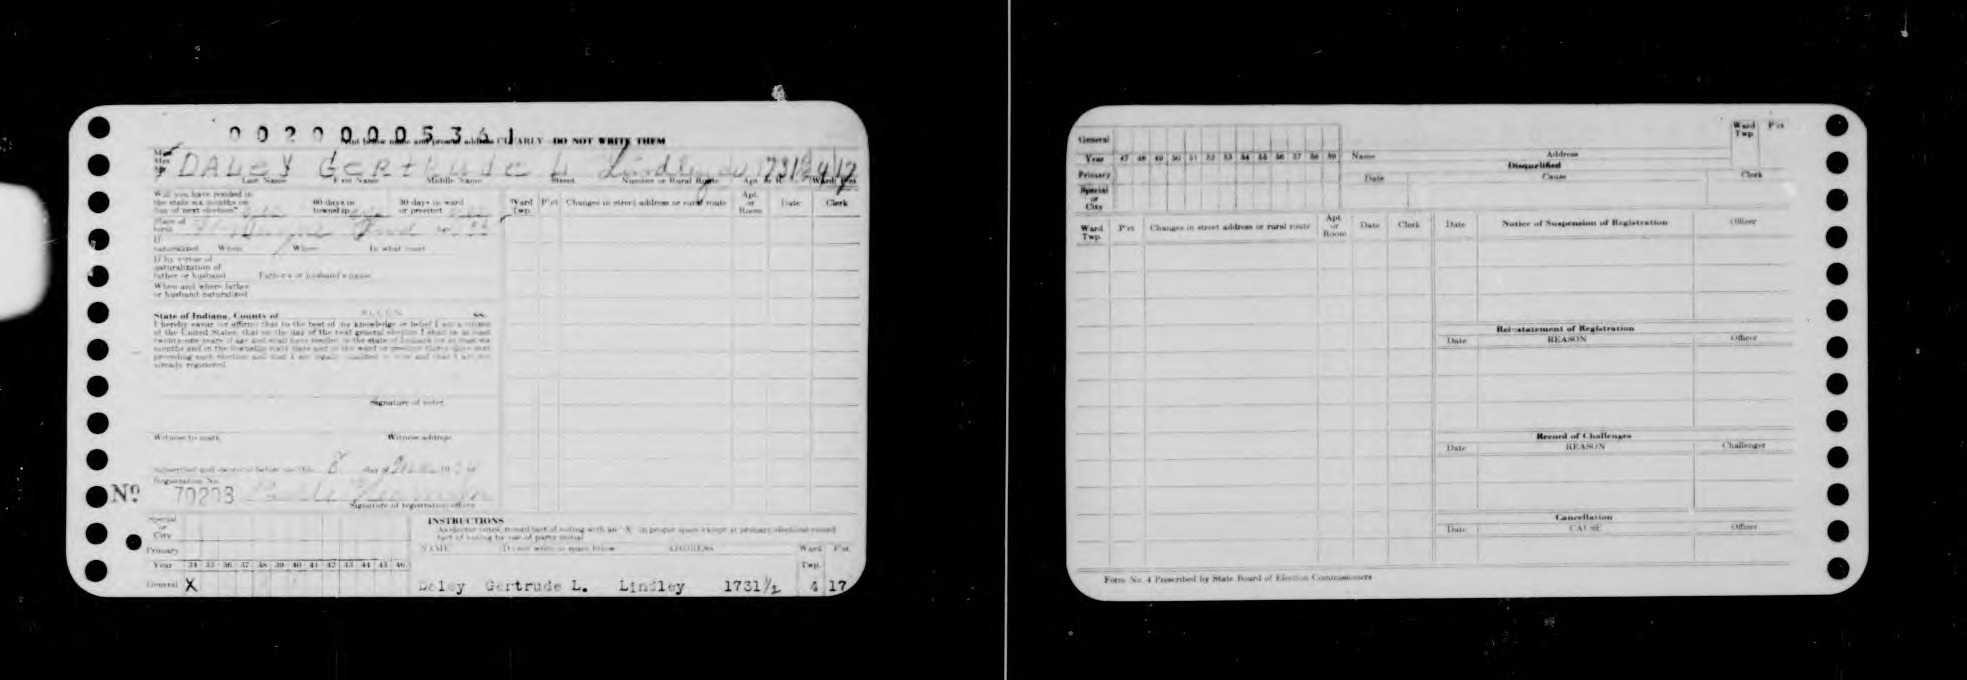 00200005361
Print below name and present address CLEARLY—DO NOT WRITE THEM
Mr.
Mrs.
DALEY GERTRUDE L Lindley av 1731½ 4 17
Last Name First Name Middle Name Street Number or Rural Route Apt. or R. Ward Pct
Will you have resided in
the state six months on 60 days in 30 days in ward
day of next election? township or precinct
Place of
birth Ft Wayne Ind
If
naturalized When Where In what court
If by virtue of
naturalization of
father or husband Father's or husband's name
When and where father
or husband naturalized
State of Indiana, County of ALLEN ss.
I hereby swear or affirm that to the best of my knowledge or belief I am a citizen
of the United States, that on the day of the next general election I shall be at least
twenty-one years of age and shall have resided in the state of Indiana for at least six
months and in the township sixty days and in the ward or precinct thirty days next
preceding such election and that I am legally qualified to vote and that I am not
already registered
Signature of voter
Witness to mark Witness address
Subscribed and sworn to before me this 8 day of 19
Registration No.
No 70203
Signature of registration officer
Ward Twp. P'ct Changes in street address or rural route Apt. or Room Date Clerk
Special
or
City
Primary
Year 34 35 36 37 38 39 40 41 42 43 44 45 46
General X
INSTRUCTIONS
As elector votes, record fact of voting with an "X" in proper space except at primary elections record
fact of voting by use of party initial
NAME (Do not write in space below) ADDRESS Ward Twp. P'ct
Daley Gertrude L. Lindley 1731½ 4 17
General
Year 47 48 49 50 51 52 53 54 55 56 57 58 59
Primary
Special
or
City
Name Address Ward Twp. P'ct
Disqualified
Date Cause Clerk
Ward Twp. P'ct Changes in street address or rural route Apt. or Room Date Clerk
Date Notice of Suspension of Registration Officer
Reinstatement of Registration
Date REASON Officer
Record of Challenges
Date REASON Challenger
Cancellation
Date CAUSE Officer
Form No. 4 Prescribed by State Board of Election Commissioners